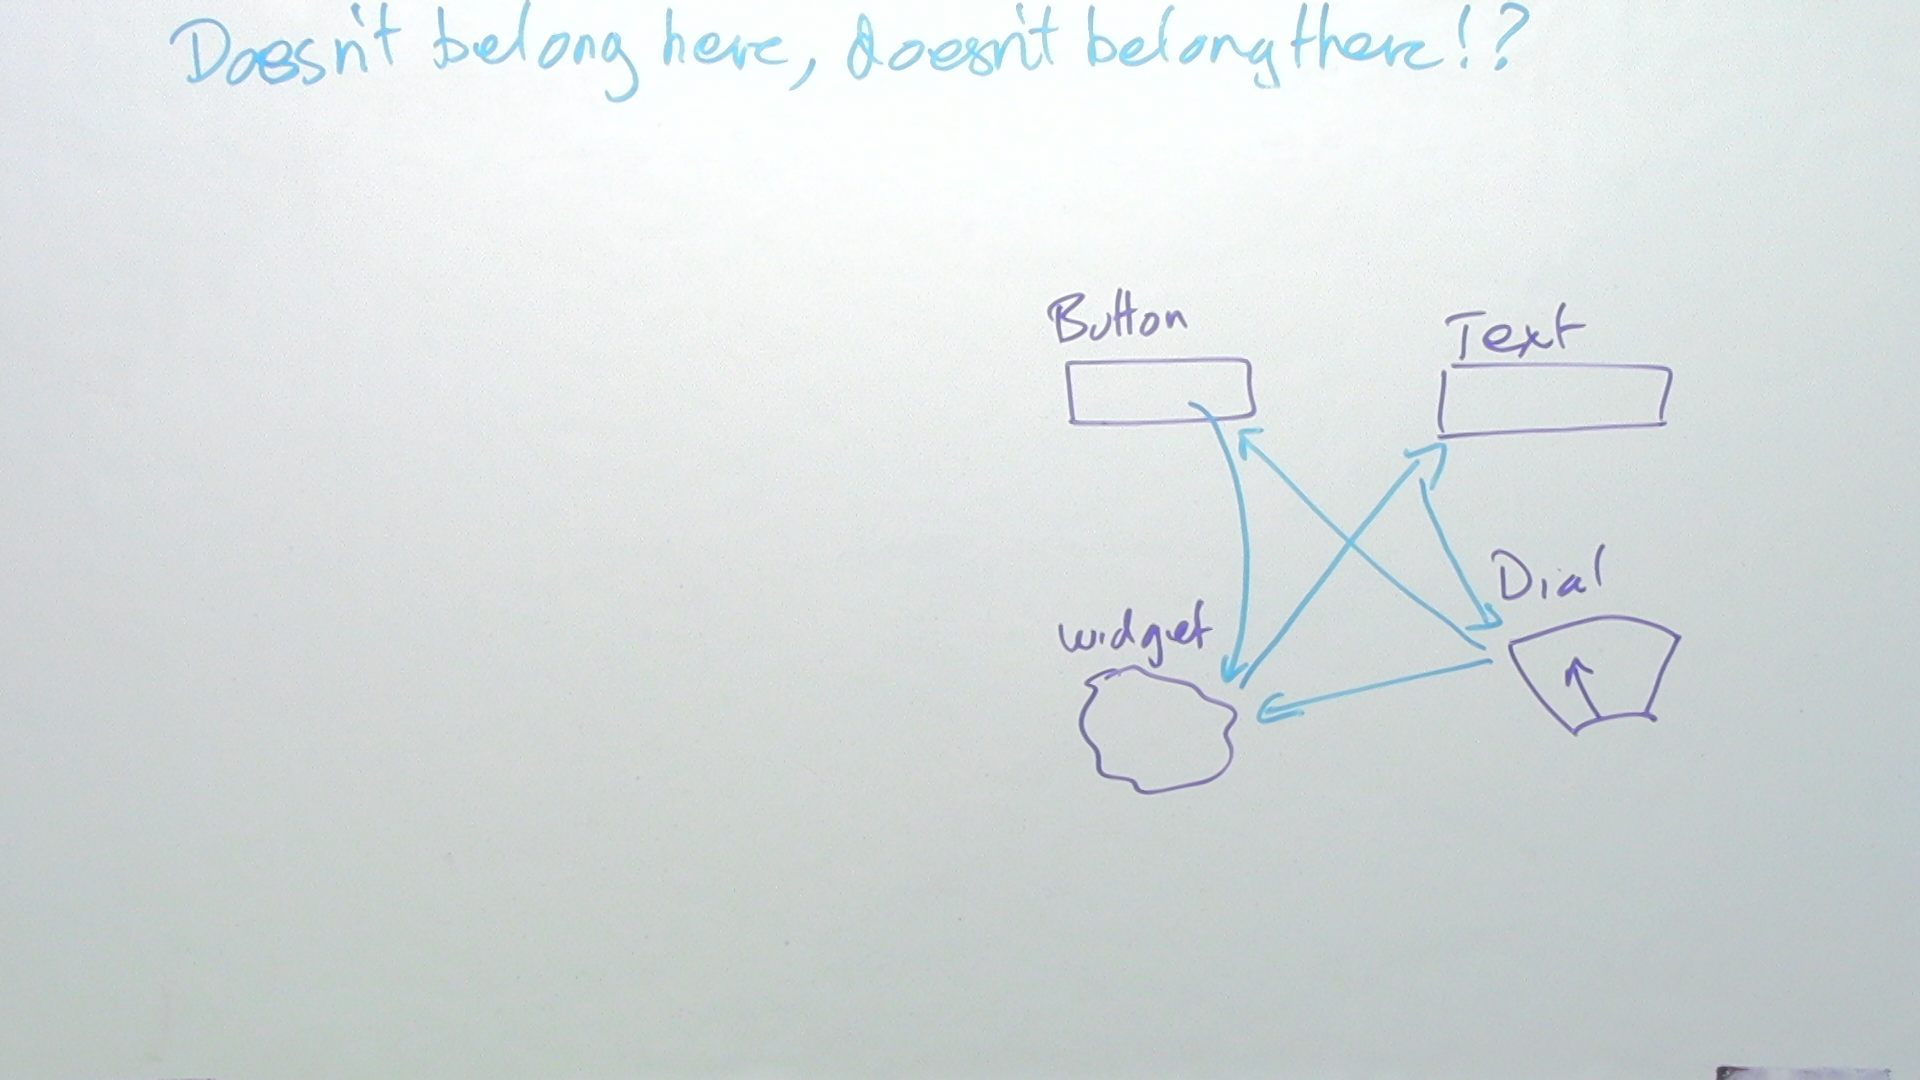 Doesn't belong here, doesn't belong there!?
Button
Text
Dial
widget